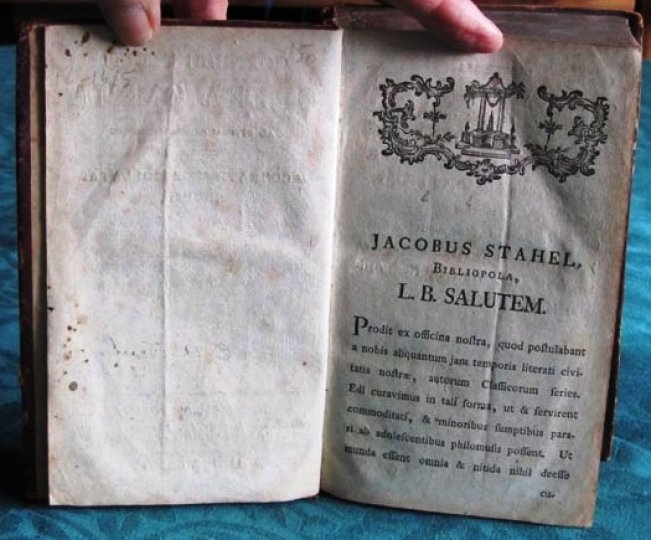 JACOBUS STAHEL,
BIBLIOPOLA,
L. B. SALUTEM.
Prodit ex officina noſtra, quod poſtulabant
a nobis aliquantum jam temporis literati civi-
tatis noſtræ, autorum Claſſicorum ſeries.
Edi curavimus in tali forma, ut & ſervirent
commoditati, & minoribus ſumptibus para-
ri ab adoleſcentibus philomuſis poſſent. Ut
munda eſſent omnia & nitida nihil deeſſe
cu-